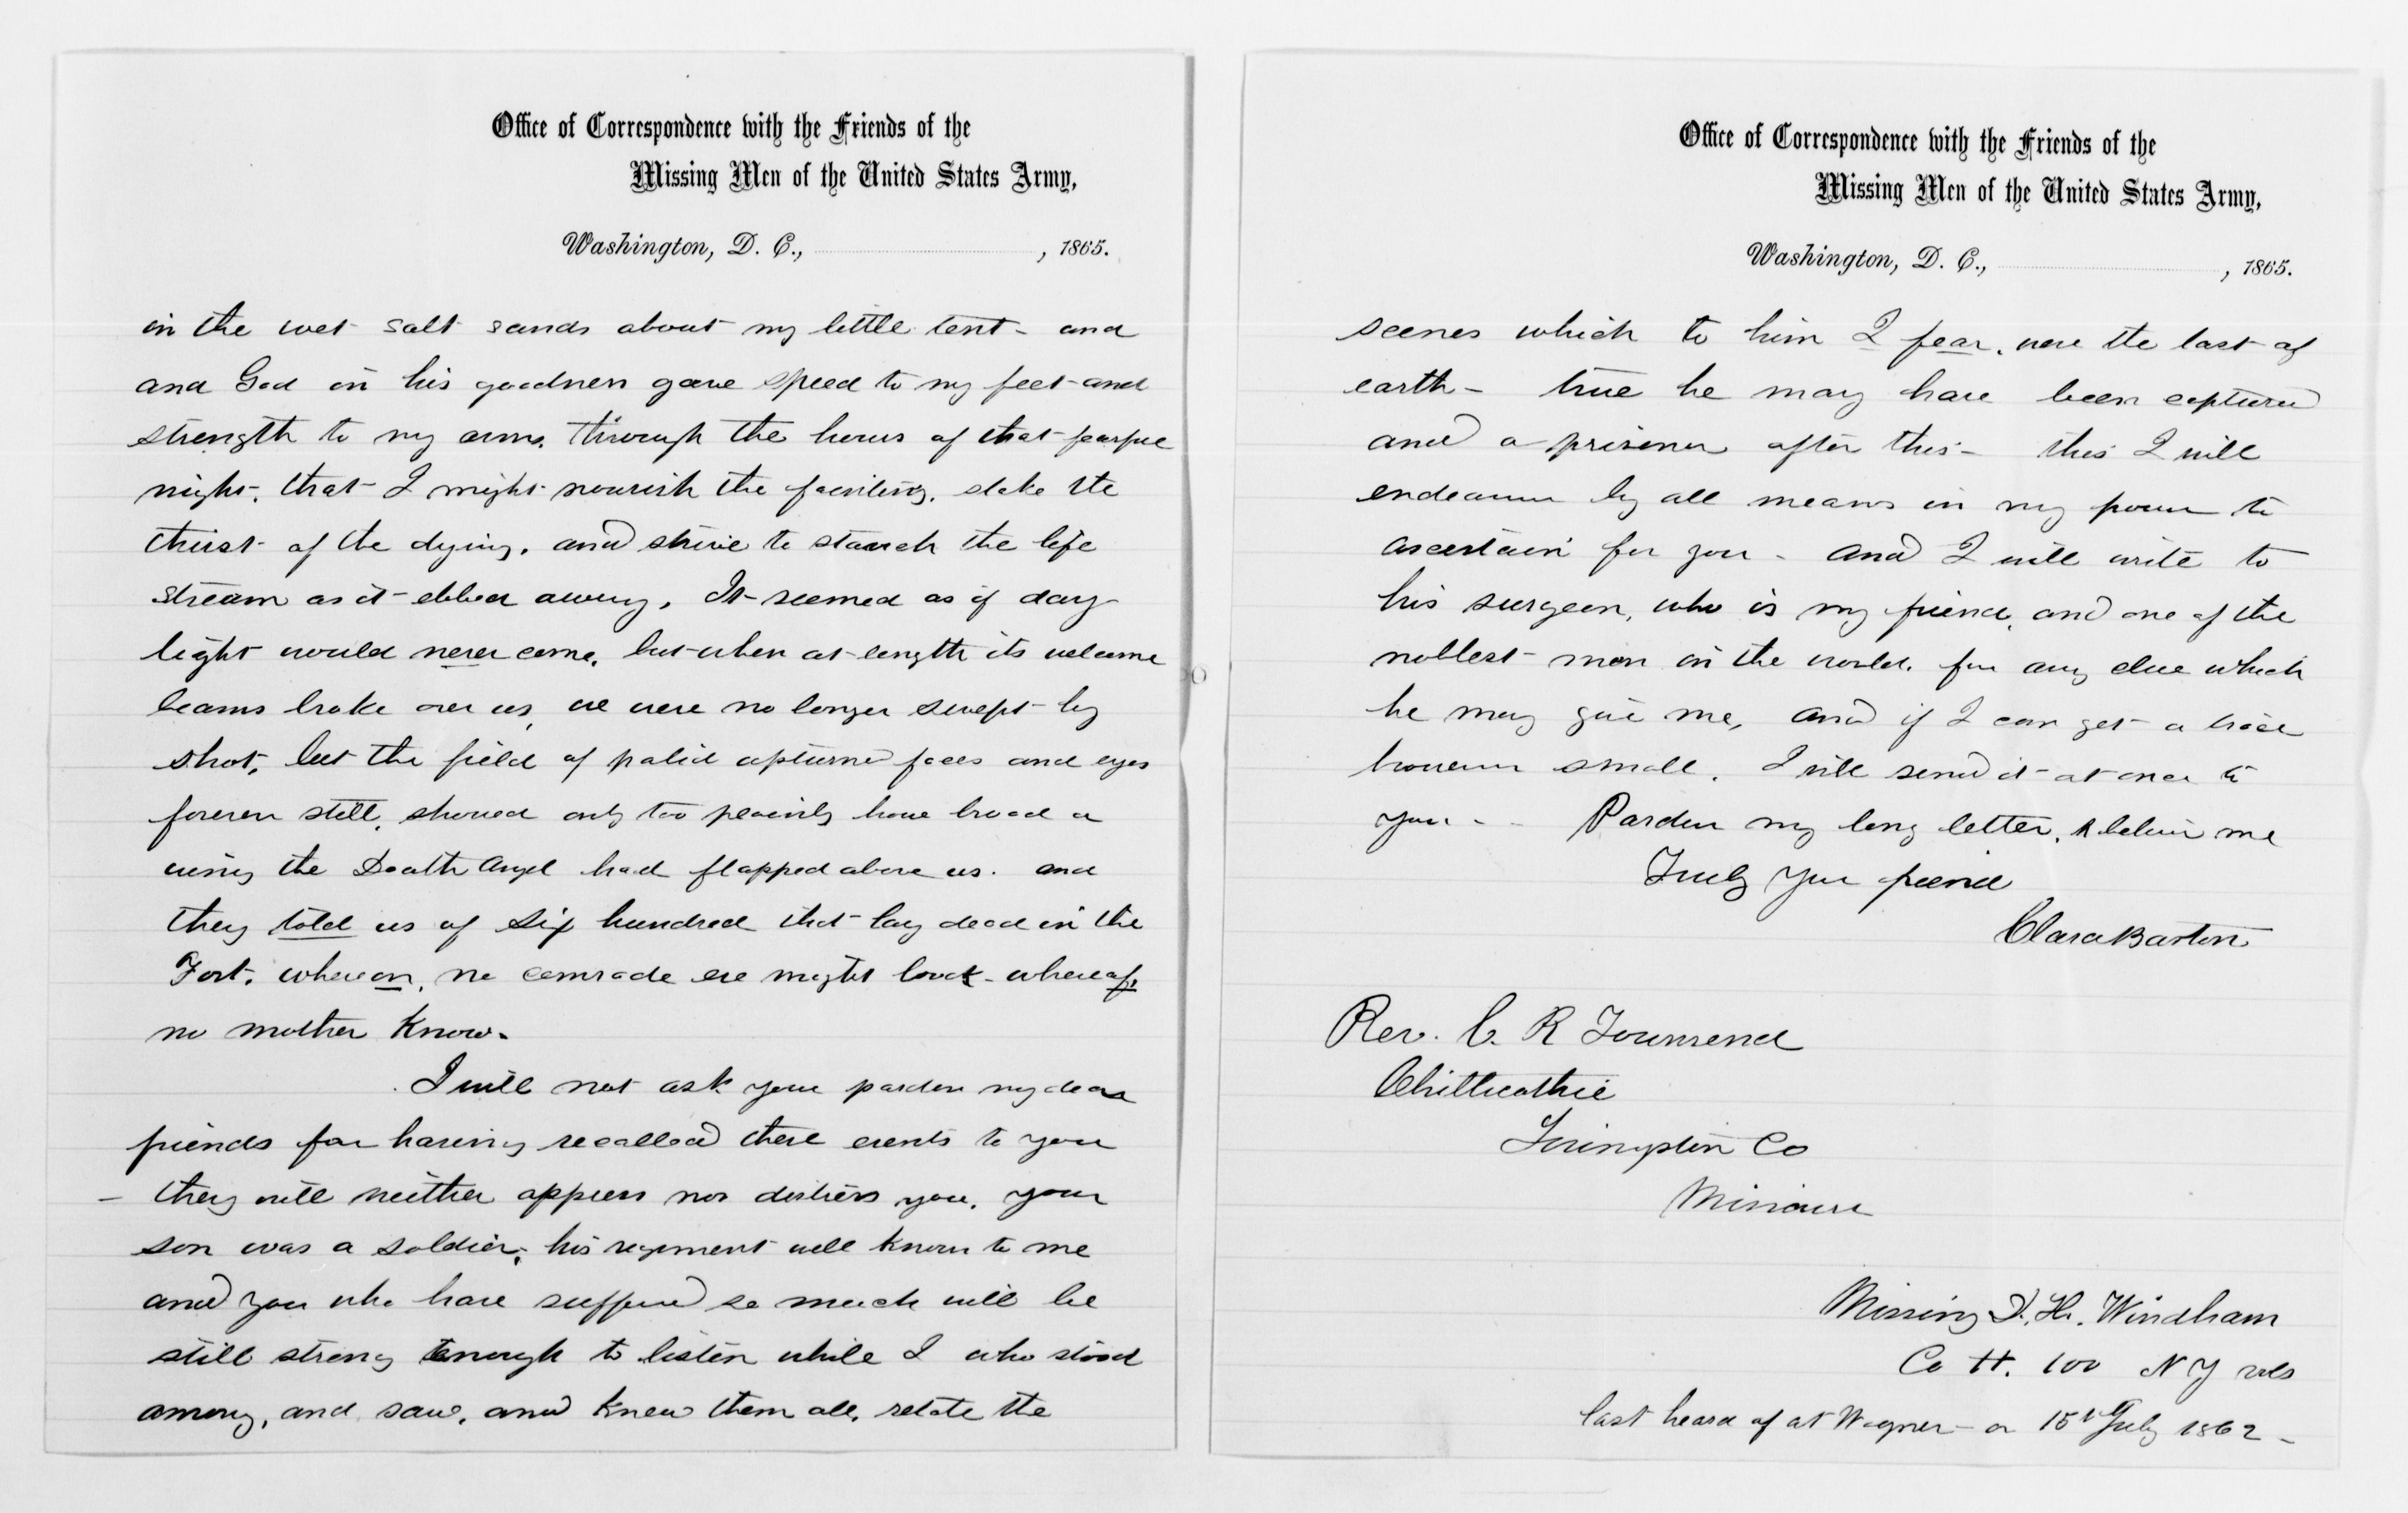 Office of Correspondence with the Friends of the
Missing Men of the United States Army,
Washington, D. C., , 1865.
in the wet salt sands about my little tent - and
and God in his goodness gave speed to my feet and
strength to my arms, through the hours of that fearful
night, that I might nourish the fainting, slake the
thirst of the dying, and strive to staunch the life
stream as it ebbed away, It seemed as if day
light would never come, but when at length its welcome
beams broke over us, we were no longer swept by
shot, but the field of palid upturned faces and eyes
forever still, showed only too plainly how broad a
wing the Death Angel had flapped above us. and
they told us of six hundred that lay dead in the
Fort, whereon, no comrade ere might look - whereof,
no mother know.
I will not ask your pardon my dear
friends for having recalled these events to you
- they will neither oppress nor distress you, your
son was a soldier, his regiment well known to me
and you who have suffered so much will be
still strong enough to listen while I who stood
among, and saw, and knew them all, relate the
Office of Correspondence with the Friends of the
Missing Men of the United States Army,
Washington, D. C., , 1865.
scenes which to him I fear, were the last of
earth - true he may have been captured
and a prisoner after this - this I will
endeavor by all means in my power to
ascertain for you - and I will write to
his surgeon, who is my friend, and one of the
noblest men in the world, for any clue which
he may give me, and if I can get a trace
however small, I will send it at once to
you - - Pardon my long letter, & believe me
Truly your friend
Clara Barton
Rev. C. R Townsend
Chillicothie
Livingston Co
Missouri
Missing D. H. Windham
Co H. 100 N Y vols
last heard of at Wagner - on 15th July 1862 -